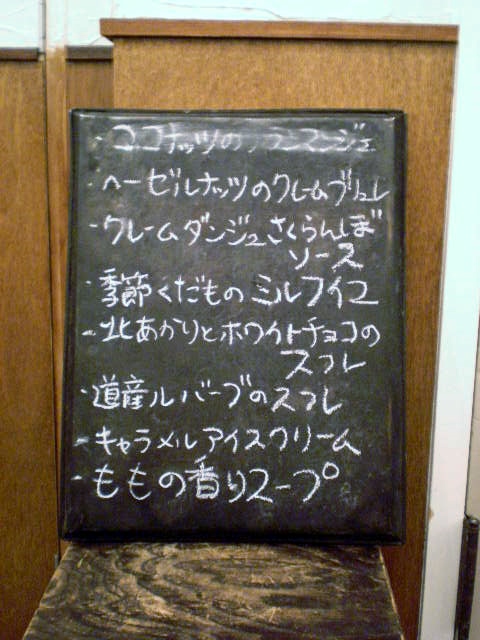 ・ココナッツのブランマンジェ
・ヘーゼルナッツのクレームブリュレ
・クレームダンジュさくらんぼ
ソース
・季節くだもの ミルフイユ
・北あかりとホワイトチョコの
スフレ
・道産ルバーブのスフレ
・キャラメルアイスクリーム
・ももの香りスープ